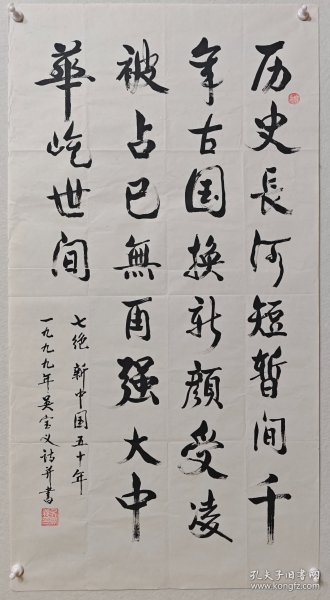 历史長河短暫间千
年古国换新颜受凌
被占已無再强大中
華屹世间
七绝 新中国五十年
一九九九年吴宝义诗并書
孔夫子旧书网